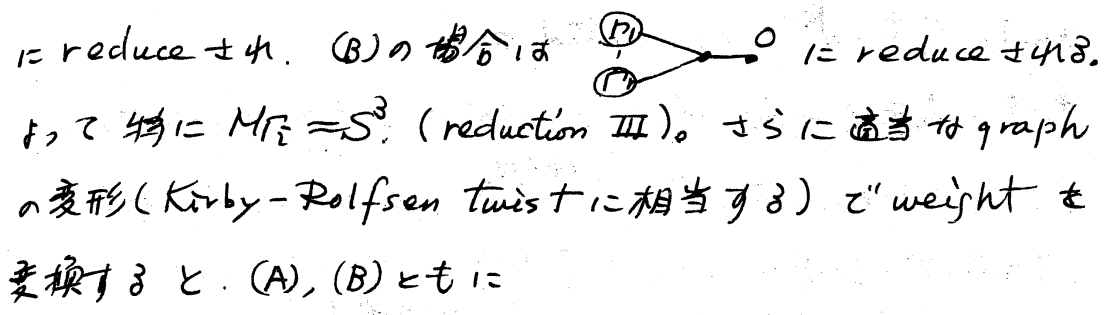 に reduce され. (B)の場合は Γ₁ Γᵢ 0 に reduce される.
よって 特に MΓᵢ = S³. (reduction III)。 さらに適当な graph
の変形(Kirby-Rolfsen twist に相当する)で weight を
変換すると. (A), (B)ともに